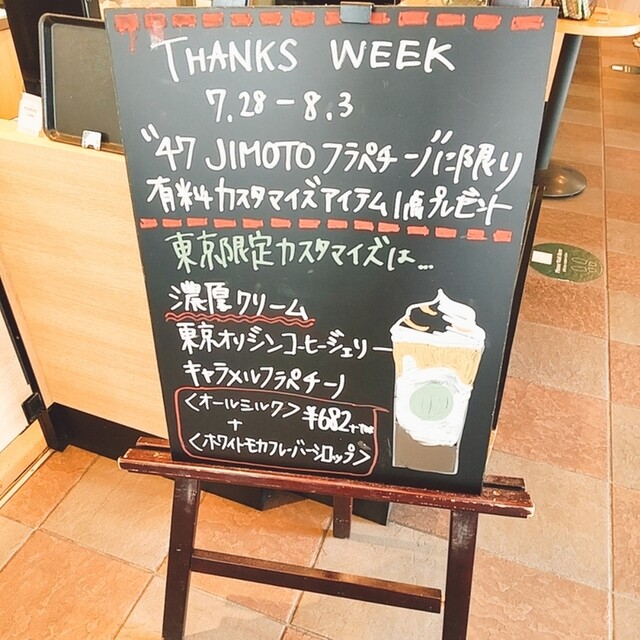 THANKS WEEK
7.28-8.3
"47 JIMOTO フラペチーノ"に限り
有料カスタマイズアイテム1点プレゼント
東京限定カスタマイズは...
濃厚クリーム
東京オリジンコーヒージェリー
キャラメルフラペチーノ
<オールミルク> ¥682+tax
+
<ホワイトモカフレーバーシロップ>